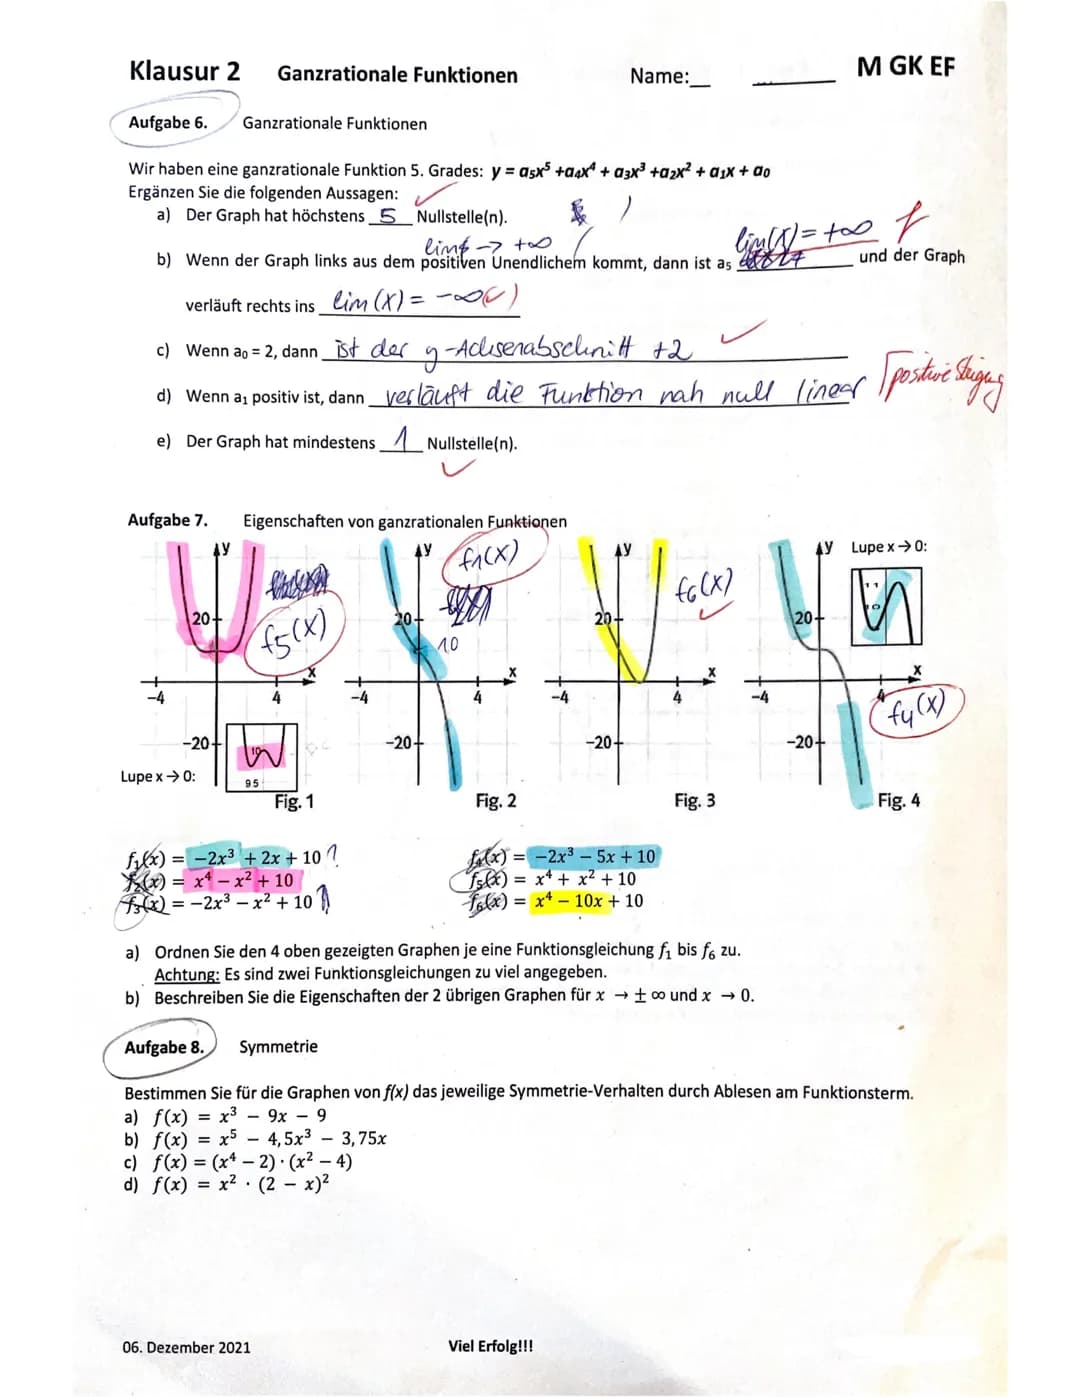 Klausur 2 Ganzrationale Funktionen Name:__ M GK EF
Aufgabe 6. Ganzrationale Funktionen
Wir haben eine ganzrationale Funktion 5. Grades: y = a₅x⁵ +a₄x⁴ + a₃x³ +a₂x² + a₁x + a₀
Ergänzen Sie die folgenden Aussagen:
a) Der Graph hat höchstens 5 Nullstelle(n).
lim → +∞
lim(x) = +∞ f
b) Wenn der Graph links aus dem positiven Unendlichem kommt, dann ist a₅ und der Graph
verläuft rechts ins lim (x) = -∞ (✓)
c) Wenn a₀ = 2, dann ist der y-Achsenabschnitt +2
d) Wenn a₁ positiv ist, dann verläuft die Funktion nah null linear positive Steigung
e) Der Graph hat mindestens 1 Nullstelle(n).
Aufgabe 7. Eigenschaften von ganzrationalen Funktionen
y y f₁(x) y y Lupe x → 0:
f₆(x)
11
10
20 20 20 20
f₅(x) 10
x x x x
-4 4 -4 4 -4 4 -4 4
f₄(x)
-20 -20 -20 -20
10
Lupe x → 0:
95
Fig. 1 Fig. 2 Fig. 3 Fig. 4
f₁(x) = −2x³ + 2x + 10 ? f₄(x) = −2x³ − 5x + 10
f₂(x) = x⁴ − x² + 10 f₅(x) = x⁴ + x² + 10
f₃(x) = −2x³ − x² + 10 f₆(x) = x⁴ − 10x + 10
a) Ordnen Sie den 4 oben gezeigten Graphen je eine Funktionsgleichung f₁ bis f₆ zu.
Achtung: Es sind zwei Funktionsgleichungen zu viel angegeben.
b) Beschreiben Sie die Eigenschaften der 2 übrigen Graphen für x → ± ∞ und x → 0.
Aufgabe 8. Symmetrie
Bestimmen Sie für die Graphen von f(x) das jeweilige Symmetrie-Verhalten durch Ablesen am Funktionsterm.
a) f(x) = x³ − 9x − 9
b) f(x) = x⁵ − 4,5x³ − 3,75x
c) f(x) = (x⁴ − 2) · (x² − 4)
d) f(x) = x² · (2 − x)²
06. Dezember 2021 Viel Erfolg!!!